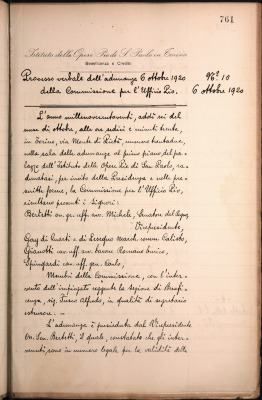 761
Istituto delle Opere Pie di S. Paolo in Torino
Beneficenza e Credito
Processo verbale dell'adunanza 6 ottobre 1920
della Commissione per l'Ufficio Pio.
N.° 10
6 ottobre 1920
L'anno millenovecentoventi, addì sei del
mese di ottobre, alle ore sedici e minuti trenta,
in Torino, via Monte di Pietà, numero trentadue,
nella sala delle adunanze al primo piano del pa-
lazzo dell'Istituto delle Opere Pie di San Paolo, ra-
dunatasi, per invito della Presidenza e nelle pre-
scritte forme, la Commissione per l'Ufficio Pio,
risultano presenti i Signori:
Bertetti on. gr. uff. avv. Michele, Senatore del Regno,
Vicepresidente,
Gay di Quarti e di Lesegno march. comm. Calisto,
Gianotti cav. uff. avv. barone Romano Enrico,
cav. uff. geom. Carlo,
Membri della Commissione, con l'inter-
vento dell'impiegato reggente la sezione di Benefi-
cenza, rig. Alfredo, in qualità di segretario
L'adunanza è presieduta dal Vicepresidente
On. Sen. Bertetti, il quale, constatato che gli inter-
venuti sono in numero legale per la validità delle